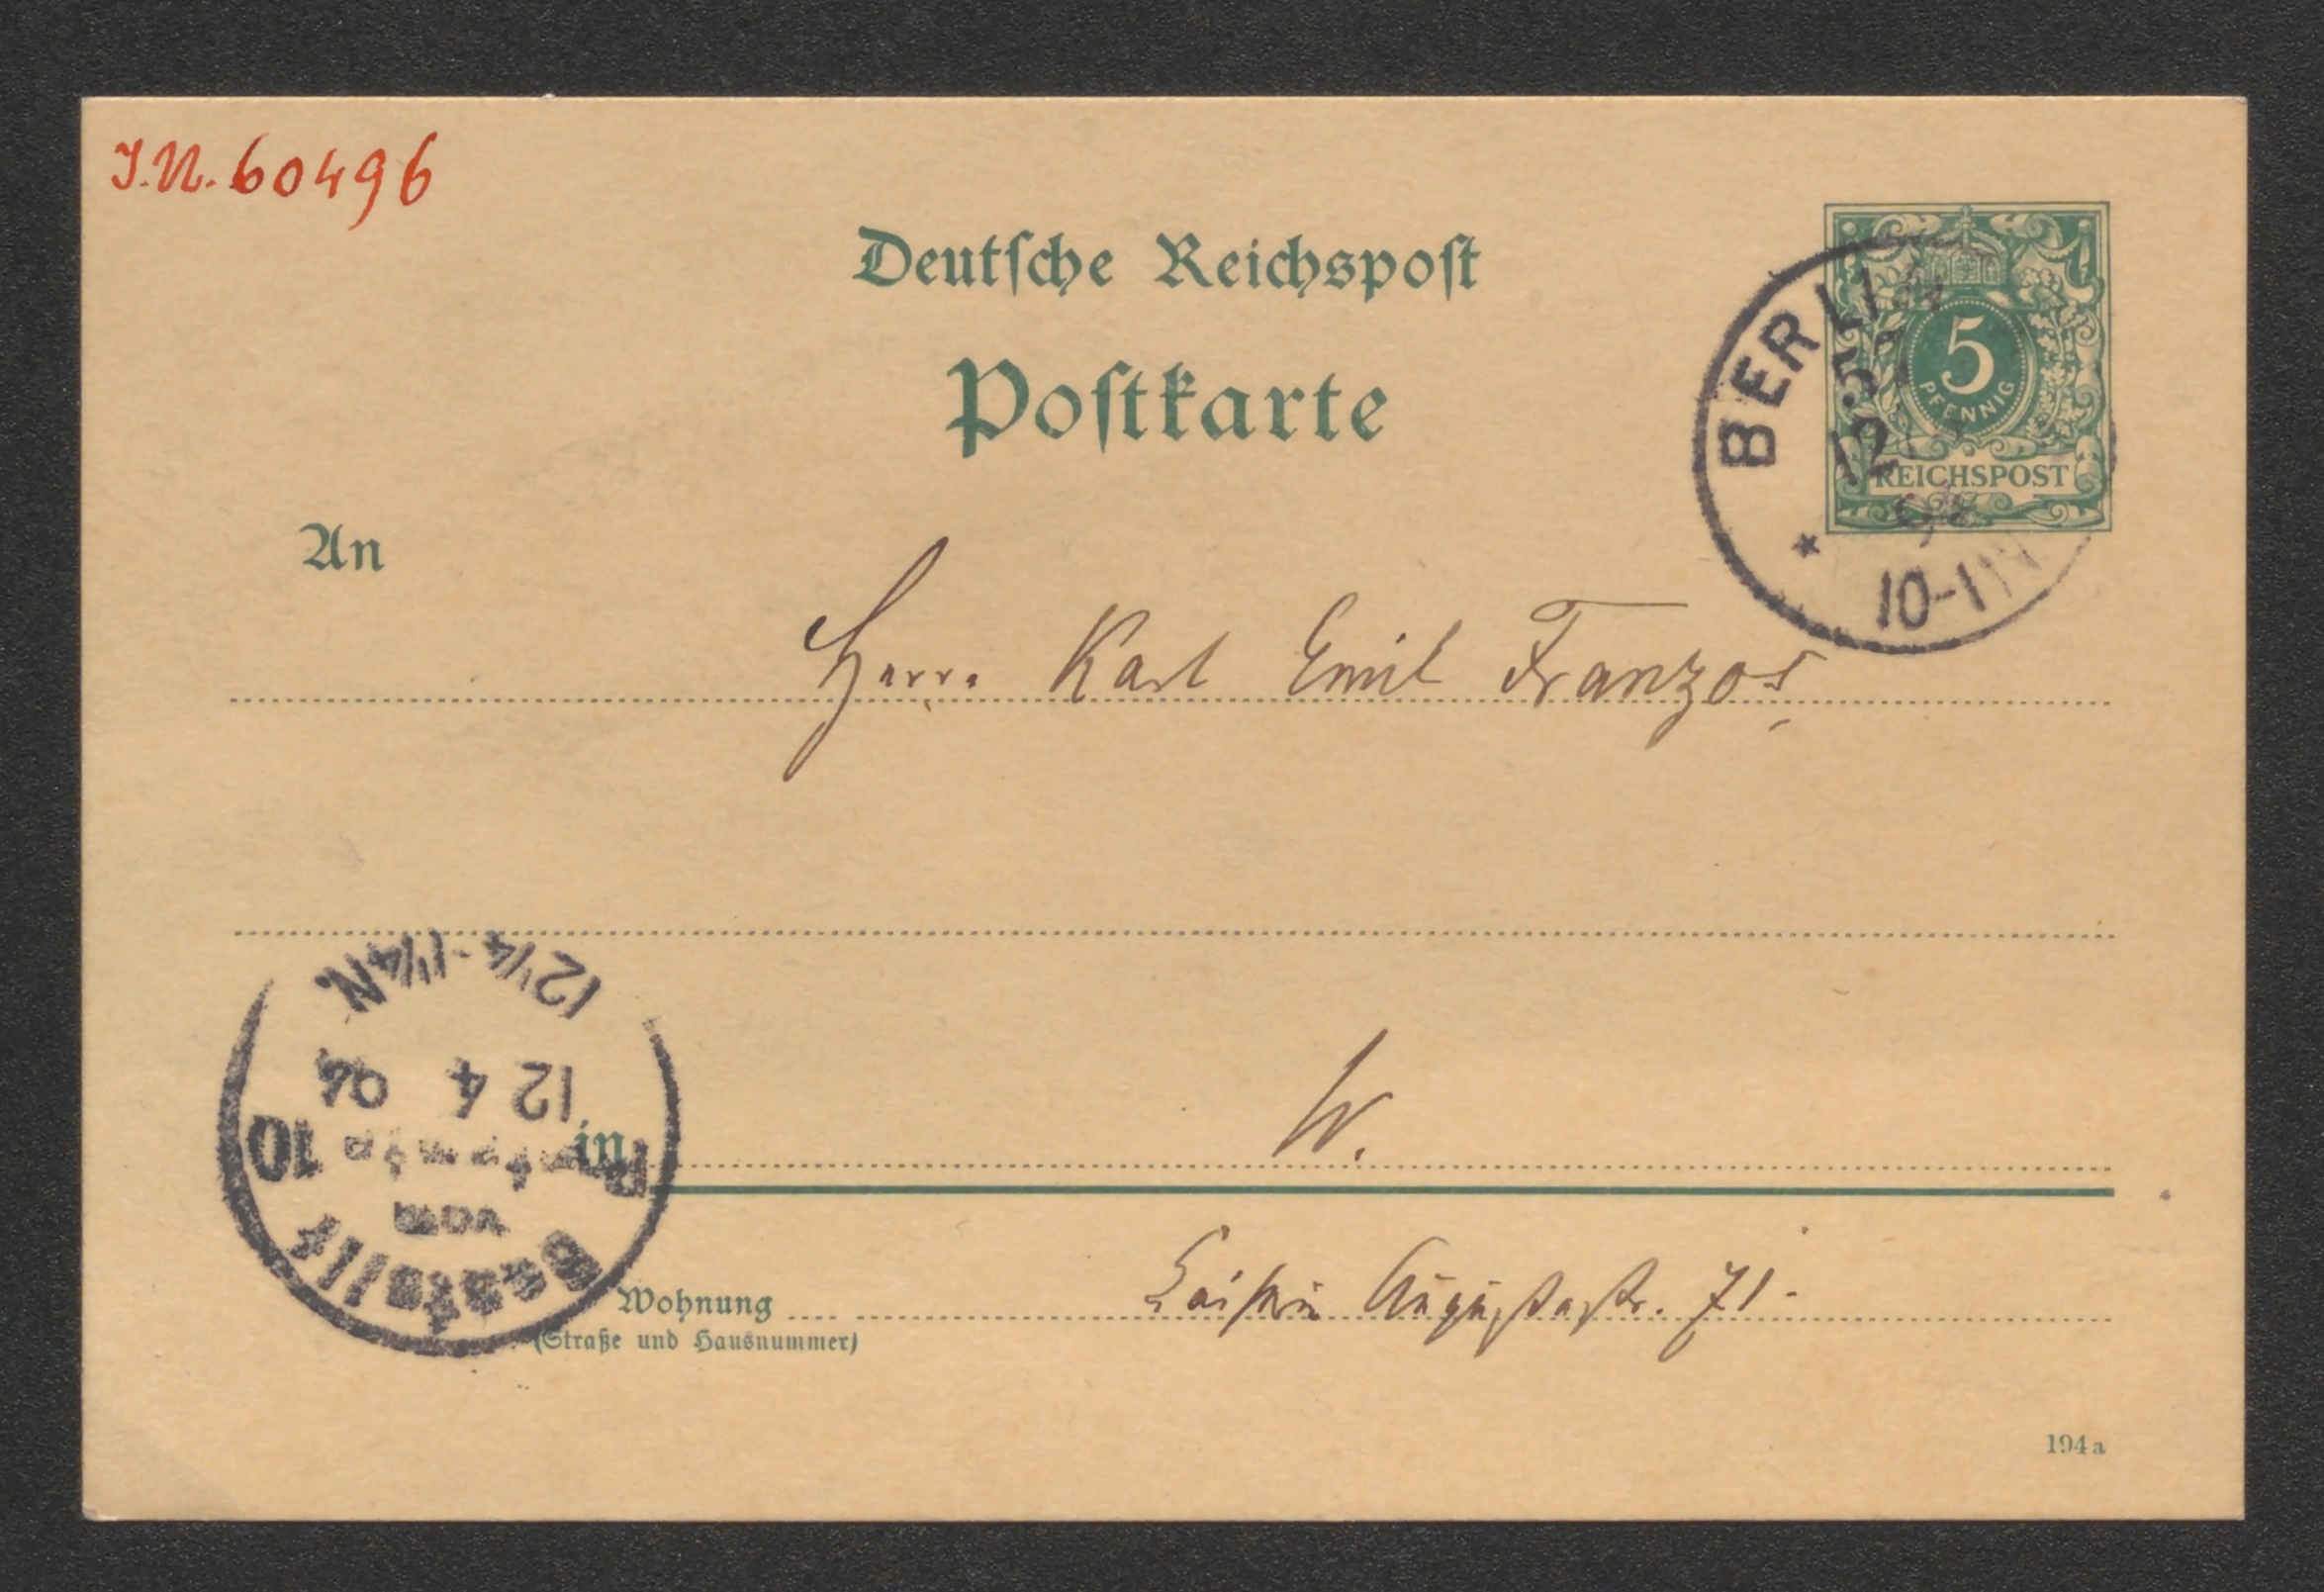 J.N. 60496
Deutsche Reichspost
Postkarte
5
PFENNIG
REICHSPOST
BERLIN
12
10-11 N
An
Herrn Karl Emil Franzos
W.
in
12 1/4-1 1/4 N.
12 4 94
10
vom
Bestellt
Wohnung
Kaiserin Augustastr. 71.
(Straße und Hausnummer)
194a